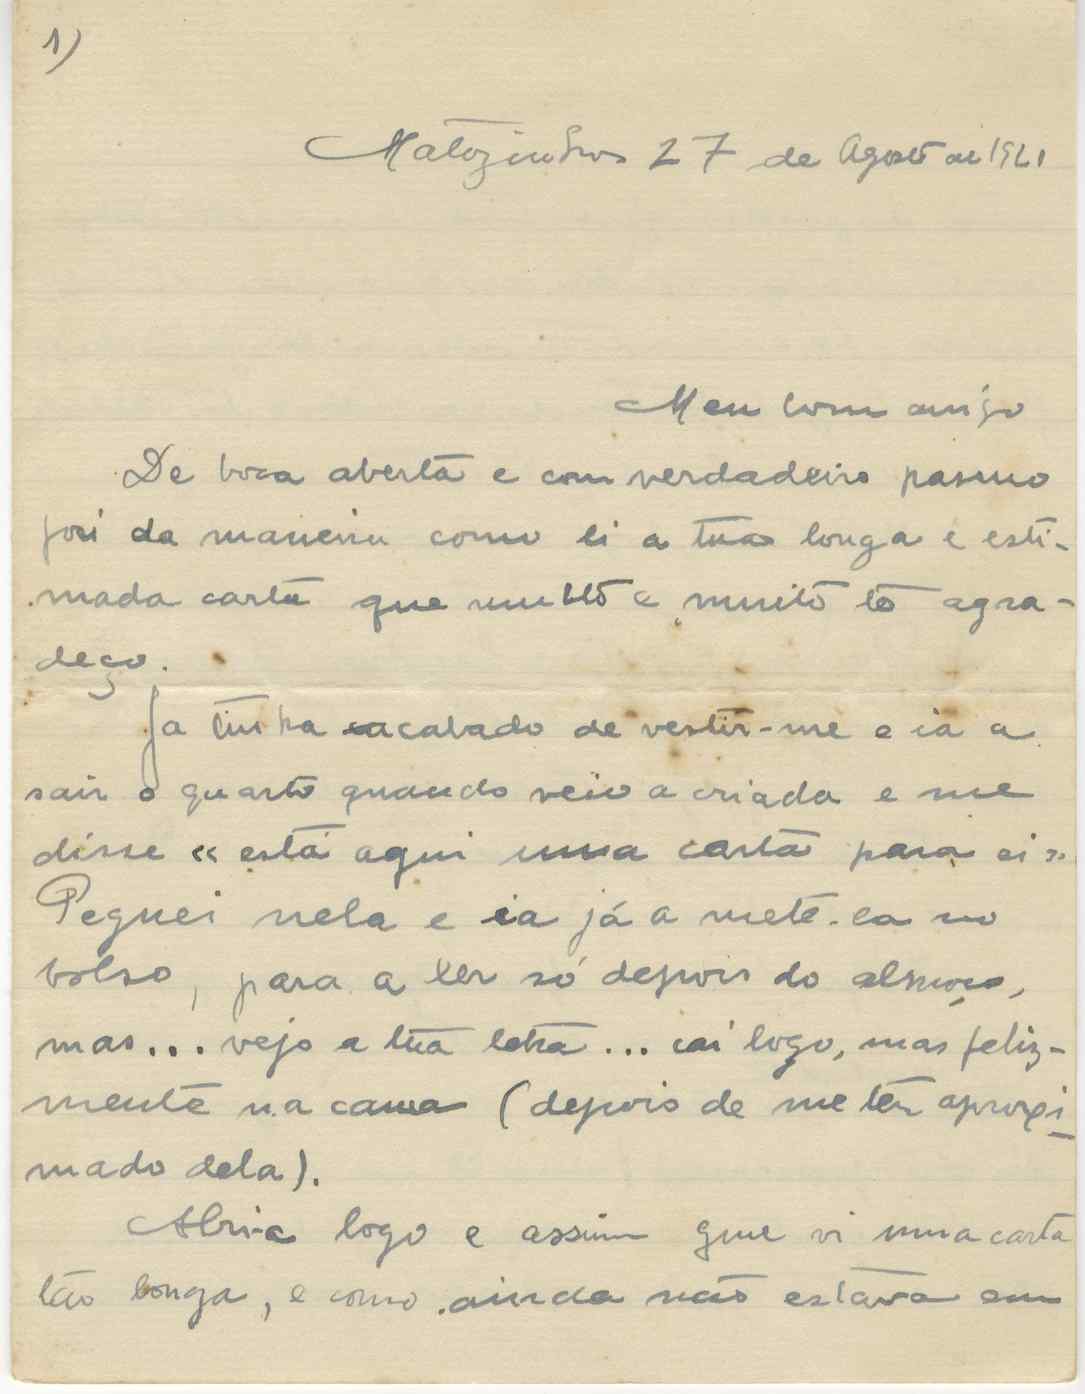 1)
Matozinhos 27 de Agosto de 1921
Meu bom amigo
De boca aberta e com verdadeiro pasmo
foi da maneira como li a tua longa e esti-
mada carta que muito e muito te agra-
deço.
Ja tinha acabado de vestir-me e ia a
sair o quarto quando veio a criada e me
disse « está aqui uma carta para si »
Peguei nela e ia já a mete-la no
bolso, para a ler só depois do almoço,
mas... vejo a tua letra... cai logo, mas feliz-
mente na cama (depois de me ter aproxi-
mado dela).
Abri-a logo e assim que vi uma carta
tão longa, e como ainda não estava em